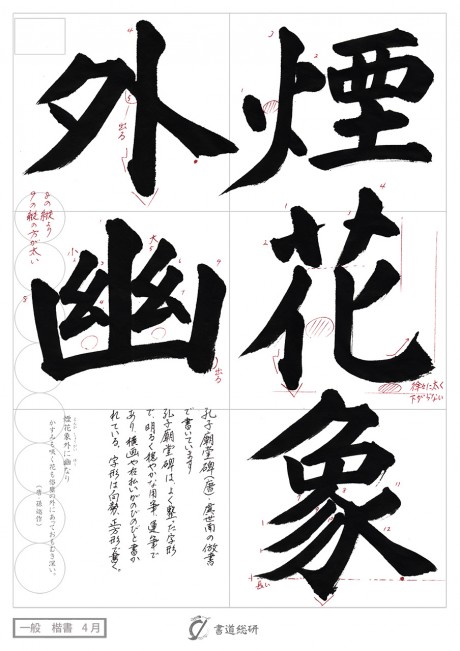 煙花象
外幽
出る
8の縦より
9の縦の方が太い
大
小
出る
徐々に太く
下がらない
長い
孔子廟堂碑（唐・虞世南）の倣書
で書いています
孔子廟堂碑は、よく整った字形
で、明るく穏やかな用筆、運筆で
あり、横画や右払いがのびのびと書か
れている。字形は向勢、正方形で書く。
煙花象外に幽なり
かすみも咲く花も俗塵の外にあっておもむき深い。
（唐 孫逖作）
一般 楷書 4月
書道総研